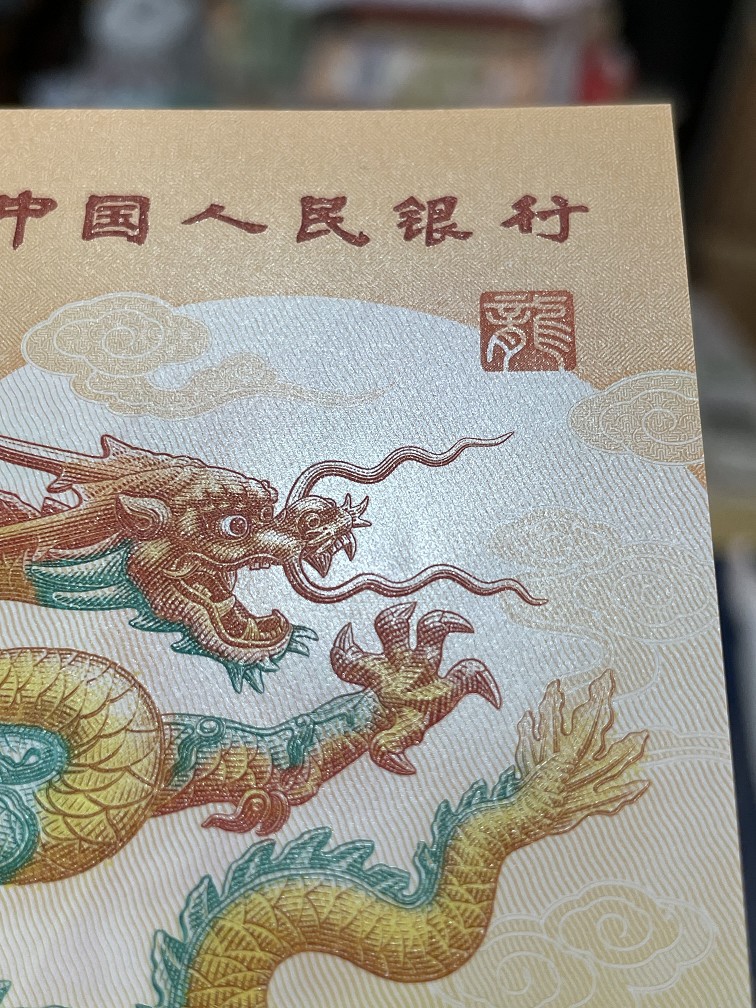 中国人民银行
龍